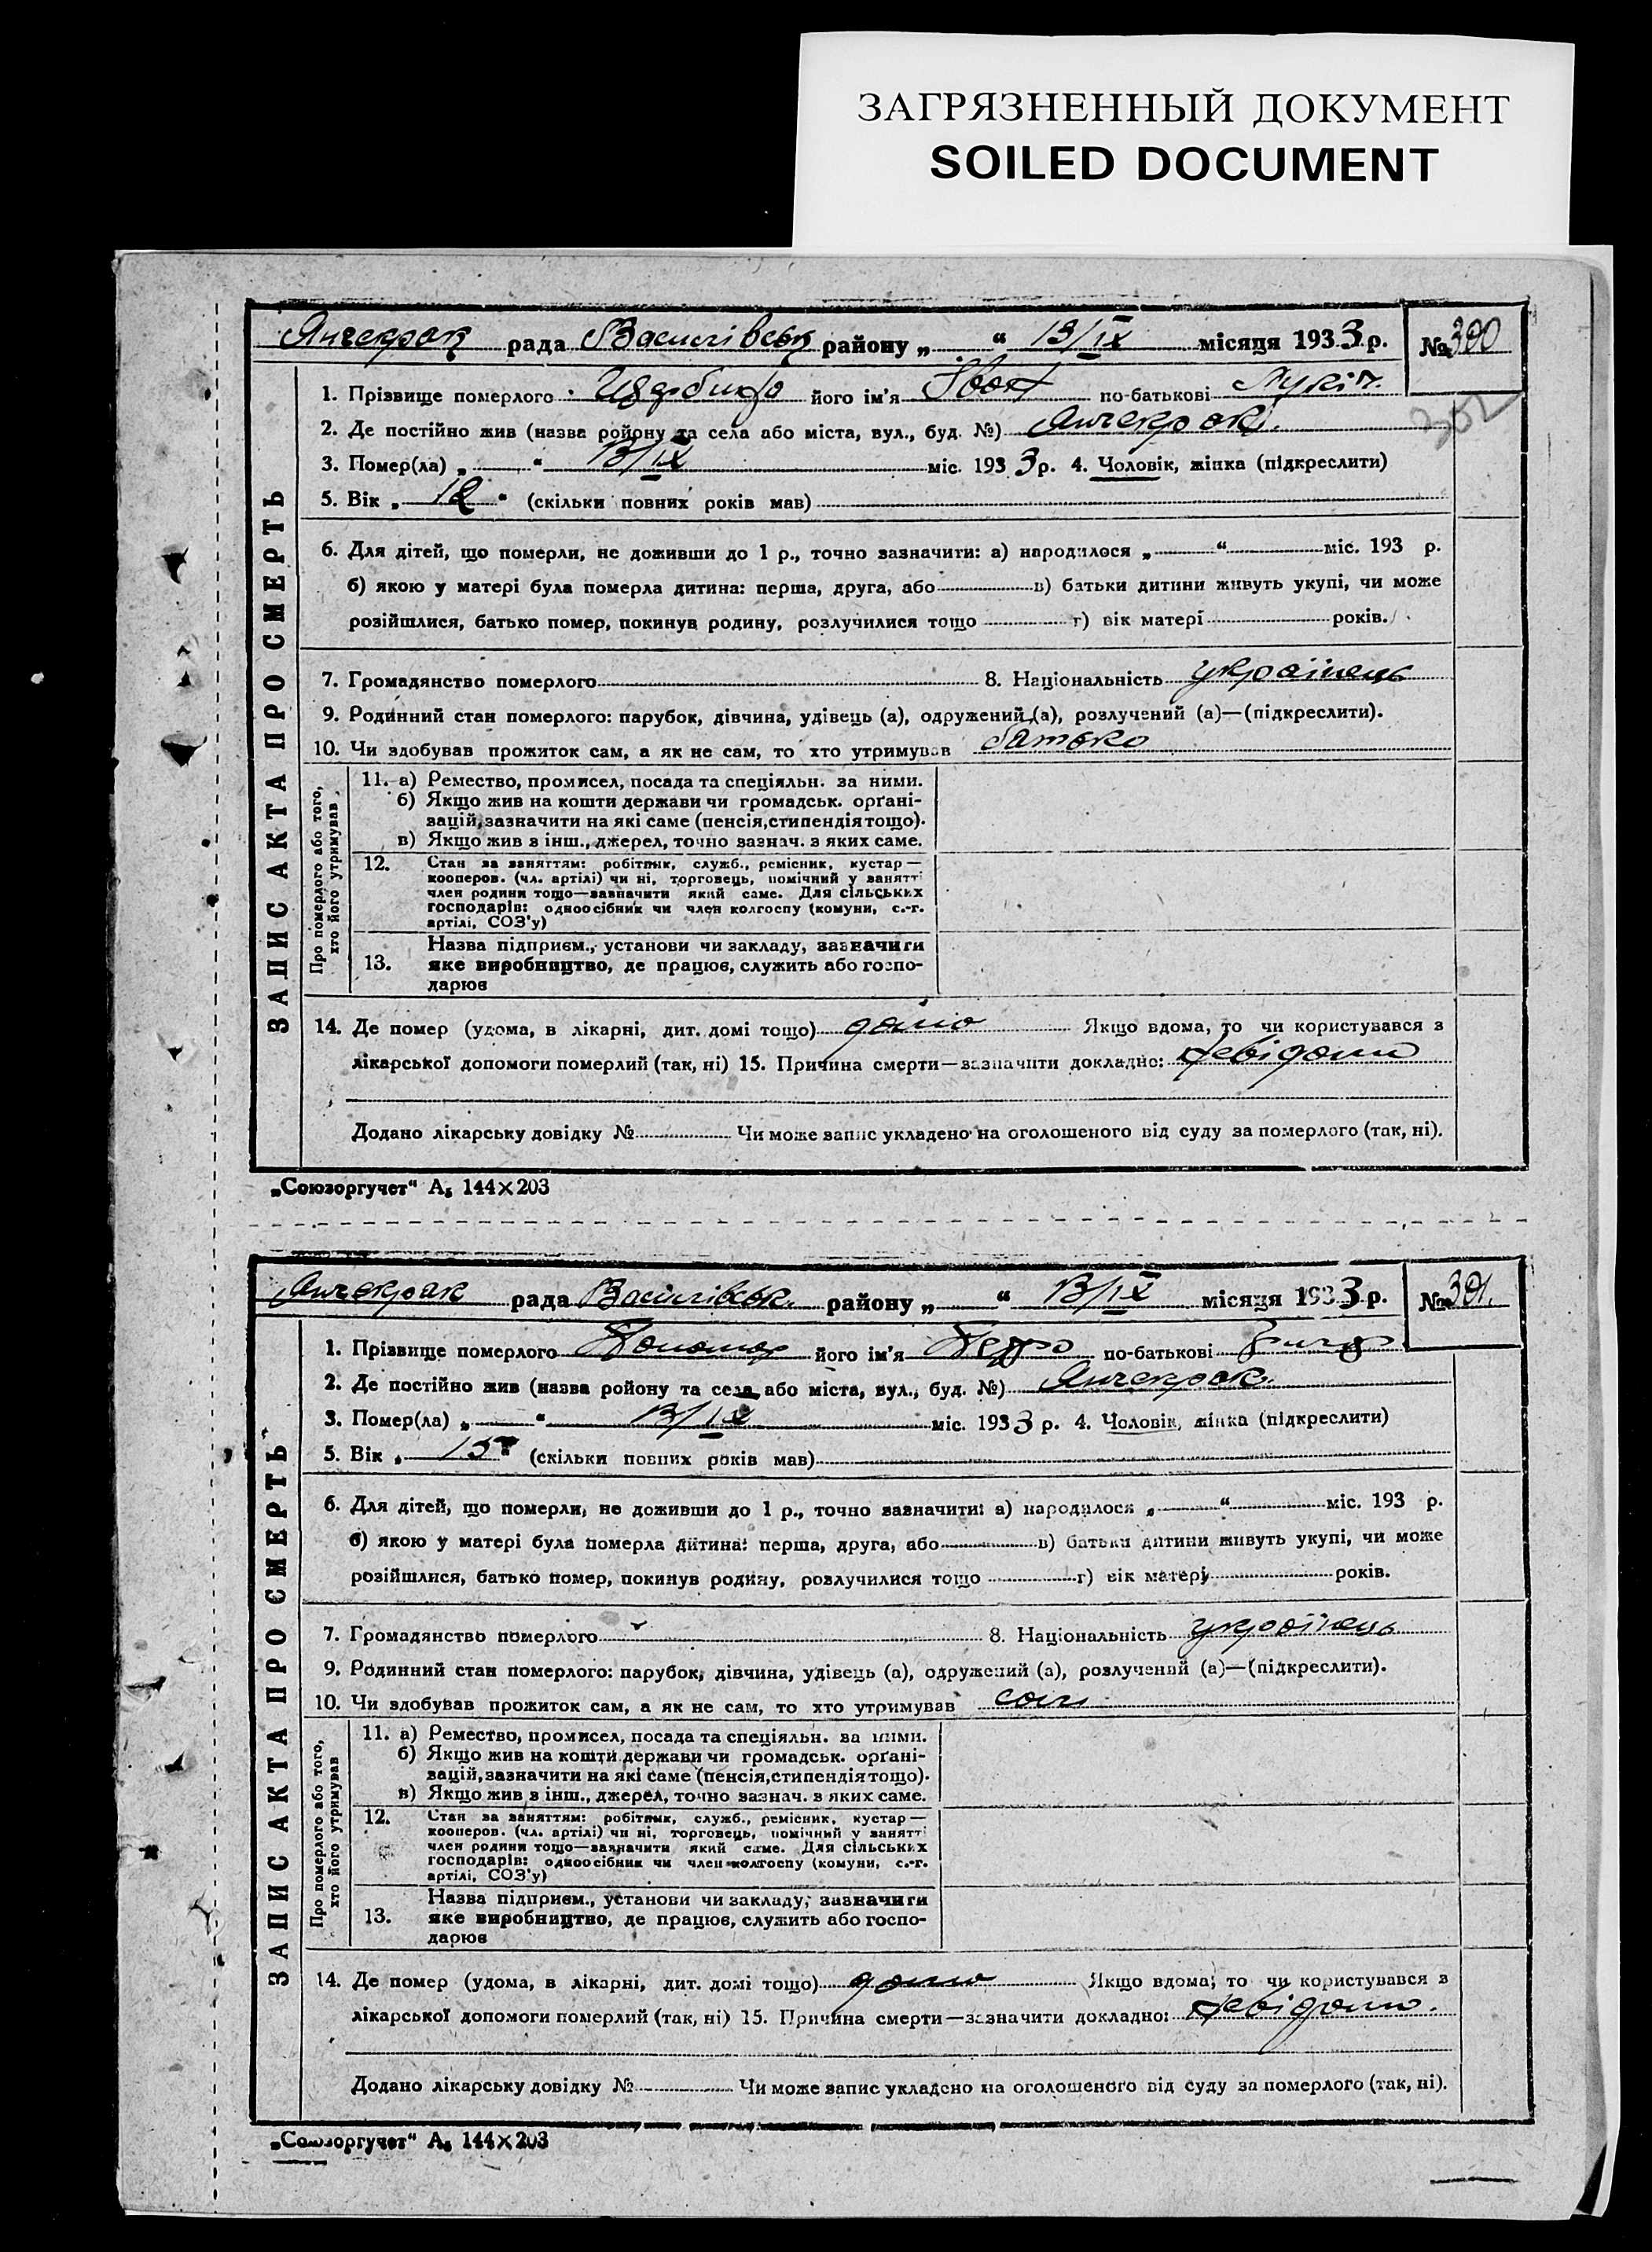 ЗАГРЯЗНЕННЫЙ ДОКУМЕНТ
SOILED DOCUMENT
Янчекрак рада Василівськ району „ “ 13/IX місяця 1933 р. № 390
1. Прізвище померлого його ім'я Іван по-батькові
2. Де постійно жив (назва ройону та села або міста, вул., буд. №) Янчекрак.
3. Помер(ла) „ “ 13/IX міс. 1933 р. 4. Чоловік, жінка (підкреслити)
5. Вік „ 12 “ (скільки повних років мав)
6. Для дітей, що померли, не доживши до 1 р., точно зазначити: а) народилося „ “ міс. 193 р.
б) якою у матері була померла дитина: перша, друга, або в) батьки дитини живуть укупі, чи може
розійшлися, батько помер, покинув родину, розлучилися тощо г) вік матері років.
7. Громадянство померлого 8. Національність українець
9. Родинний стан померлого: парубок, дівчина, удівець (а), одружений (а), розлучений (а)—(підкреслити).
10. Чи здобував прожиток сам, а як не сам, то хто утримував батько
ЗАПИС АКТА ПРО СМЕРТЬ
Про померлого або того,
хто його утримував
11. а) Ремество, промисел, посада та спеціяльн. за ними.
б) Якщо жив на кошти держави чи громадськ. орґані-
зацій, зазначити на які саме (пенсія, стипендія тощо).
в) Якщо жив з інш., джерел, точно зазнач. з яких саме.
12. Стан за заняттям: робітник, служб., ремісник, кустар—
кооперов. (чл. артілі) чи ні, торговець, помічний у занятті
член родини тощо—зазначити який саме. Для сільських
господарів: одноосібник чи член колгоспу (комуни, с.-г.
артілі, СОЗ'у)
Назва підприєм., установи чи закладу, зазначити
13. яке виробництво, де працює, служить або госпо-
дарює
14. Де помер (удома, в лікарні, дит. домі тощо) дома Якщо вдома, то чи користувався з
лікарської допомоги померлий (так, ні) 15. Причина смерти—зазначити докладно: невідомо
Додано лікарську довідку № Чи може запис укладено на оголошеного від суду за померлого (так, ні).
„Союзоргучет“ А₅ 144×203
Янчекрак рада Василівськ. району „ “ 13/IX місяця 1933 р. № 391.
1. Прізвище померлого Пономар його ім'я Петро по-батькові
2. Де постійно жив (назва ройону та села або міста, вул., буд. №) Янчекрак.
3. Помер(ла) „ “ 13/IX міс. 1933 р. 4. Чоловік, жінка (підкреслити)
5. Вік „ 15 “ (скільки повних років мав)
6. Для дітей, що померли, не доживши до 1 р., точно зазначити: а) народилося „ “ міс. 193 р.
б) якою у матері була померла дитина: перша, друга, або в) батьки дитини живуть укупі, чи може
розійшлися, батько помер, покинув родину, розлучилися тощо г) вік матері років.
7. Громадянство померлого 8. Національність українець
9. Родинний стан померлого: парубок, дівчина, удівець (а), одружений (а), розлучений (а)—(підкреслити).
10. Чи здобував прожиток сам, а як не сам, то хто утримував сам
ЗАПИС АКТА ПРО СМЕРТЬ
Про померлого або того,
хто його утримував
11. а) Ремество, промисел, посада та спеціяльн. за ними.
б) Якщо жив на кошти держави чи громадськ. орґані-
зацій, зазначити на які саме (пенсія, стипендія тощо).
в) Якщо жив з інш., джерел, точно зазнач. з яких саме.
12. Стан за заняттям: робітник, служб., ремісник, кустар—
кооперов. (чл. артілі) чи ні, торговець, помічний у занятті
член родини тощо—зазначити який саме. Для сільських
господарів: одноосібник чи член колгоспу (комуни, с.-г.
артілі, СОЗ'у)
Назва підприєм., установи чи закладу, зазначити
13. яке виробництво, де працює, служить або госпо-
дарює
14. Де помер (удома, в лікарні, дит. домі тощо) дома Якщо вдома, то чи користувався з
лікарської допомоги померлий (так, ні) 15. Причина смерти—зазначити докладно: невідомо.
Додано лікарську довідку № Чи може запис укладено на оголошеного від суду за померлого (так, ні).
„Союзоргучет“ А₅ 144×203